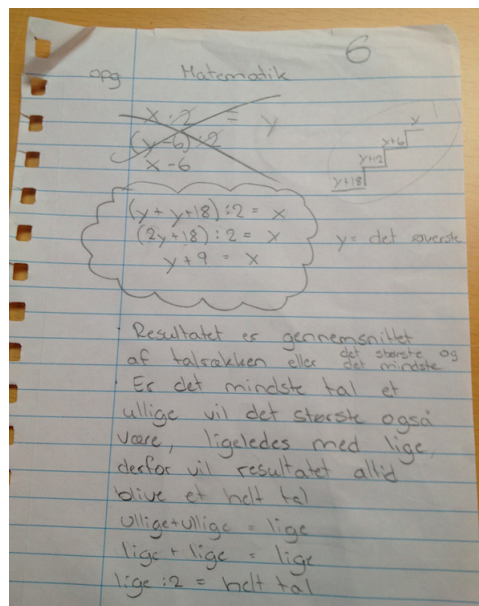 6
opg Matematik
x : 2 = y
(y-6) : 2
x - 6
y
y+6
y+12
y+18
(y + y+18) : 2 = x
(2y+18) : 2 = x
y + 9 = x
y = det øverste
Resultatet er gennemsnittet
af talrækken eller det største og
det mindste
Er det mindste tal et
ullige vil det største også
være, ligeledes med lige,
derfor vil resultatet altid
blive et helt tal
ullige+ullige = lige
lige + lige = lige
lige :2 = helt tal